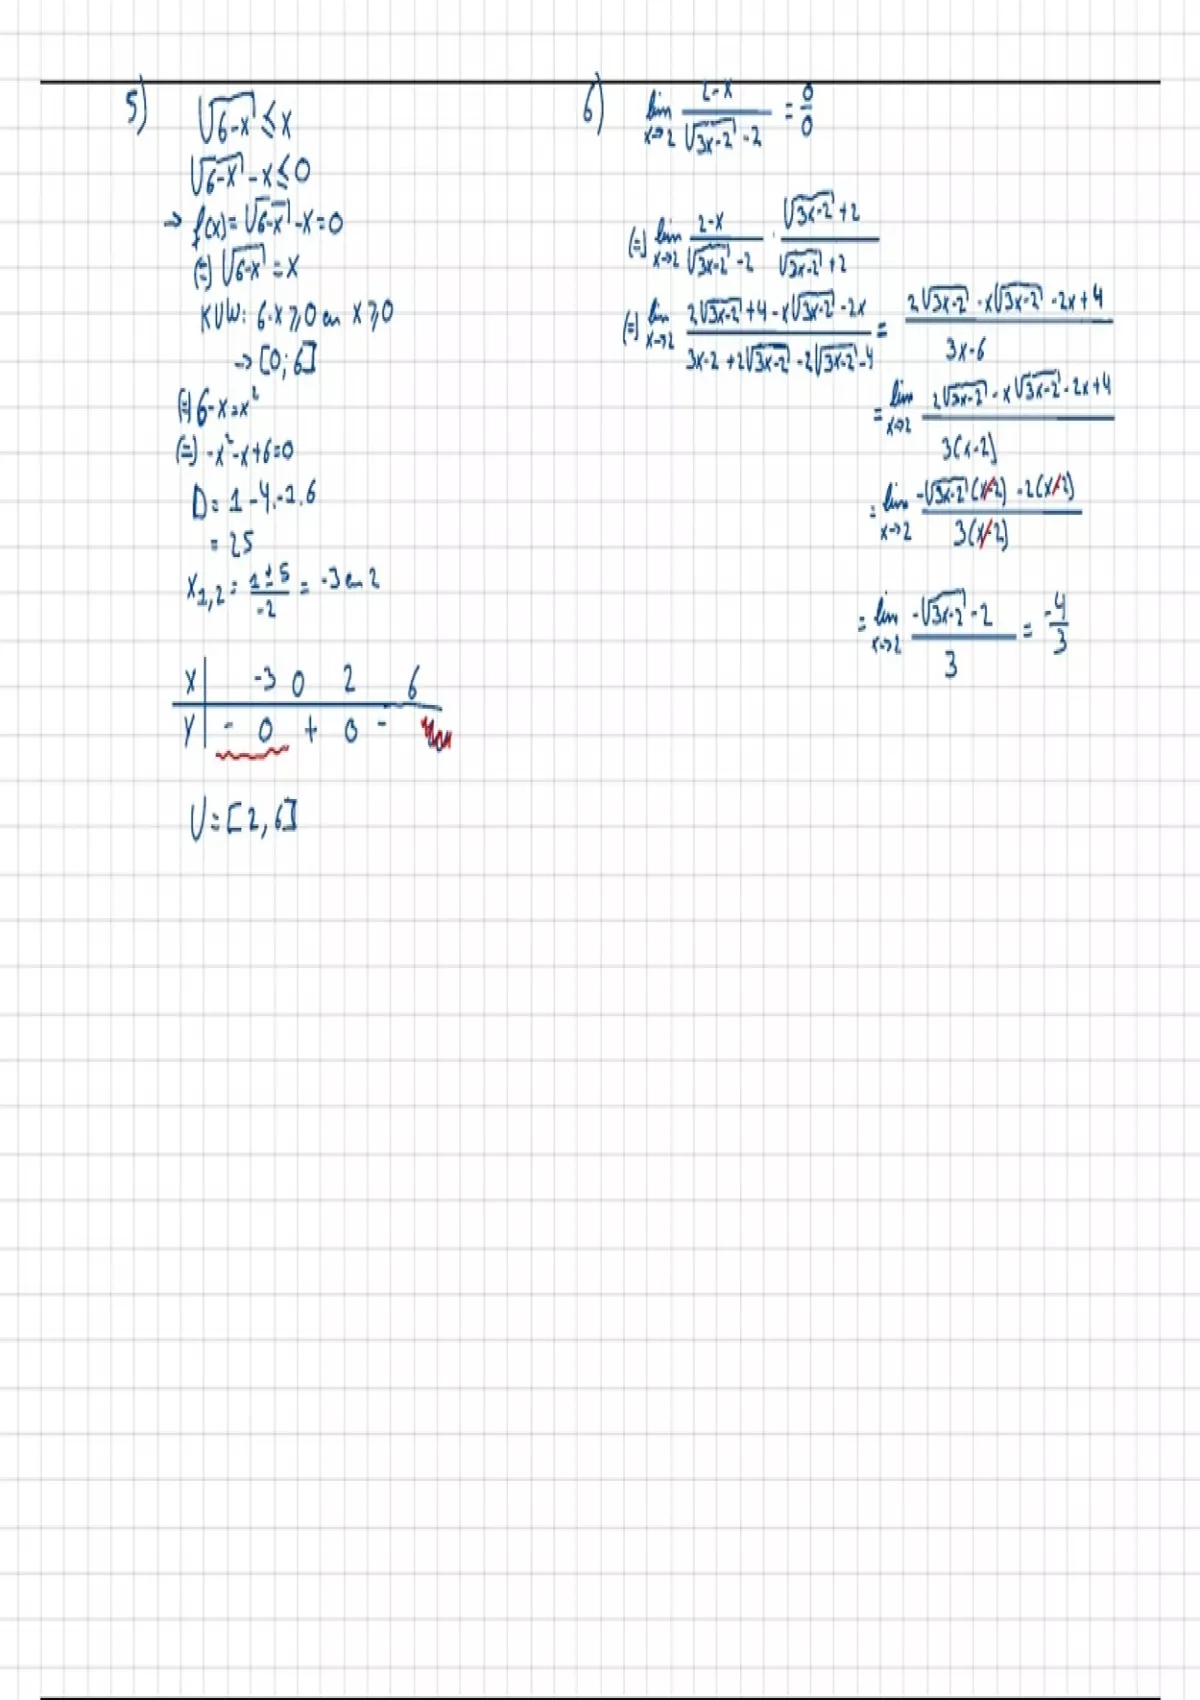 5)
√(6-x) ≤ x
√(6-x) - x ≤ 0
→ f(x) = √(6-x) - x = 0
(=) √(6-x) = x
KVW: 6-x ≥ 0 en x ≥ 0
→ [0; 6]
(=) 6-x = x²
(=) -x²-x+6=0
D = 1 - 4.-1.6
= 25
x₁,₂ = (1±5)/-2 = -3 en 2
x | -3 0 2 6
y | - 0 + 0 -
V = [2, 6]
6) lim x→2 (2-x)/(√(3x-2) - 2) = 0/0
(=) lim x→2 (2-x)/(√(3x-2) - 2) · (√(3x-2) + 2)/(√(3x-2) + 2)
(=) lim x→2 (2√(3x-2) + 4 - x√(3x-2) - 2x)/(3x-2 + 2√(3x-2) - 2√(3x-2) - 4) = (2√(3x-2) - x√(3x-2) - 2x + 4)/(3x-6)
= lim x→2 (2√(3x-2) - x√(3x-2) - 2x + 4)/(3(x-2))
= lim x→2 (-√(3x-2)(x-2) - 2(x-2))/(3(x-2))
= lim x→2 (-√(3x-2) - 2)/3 = -4/3